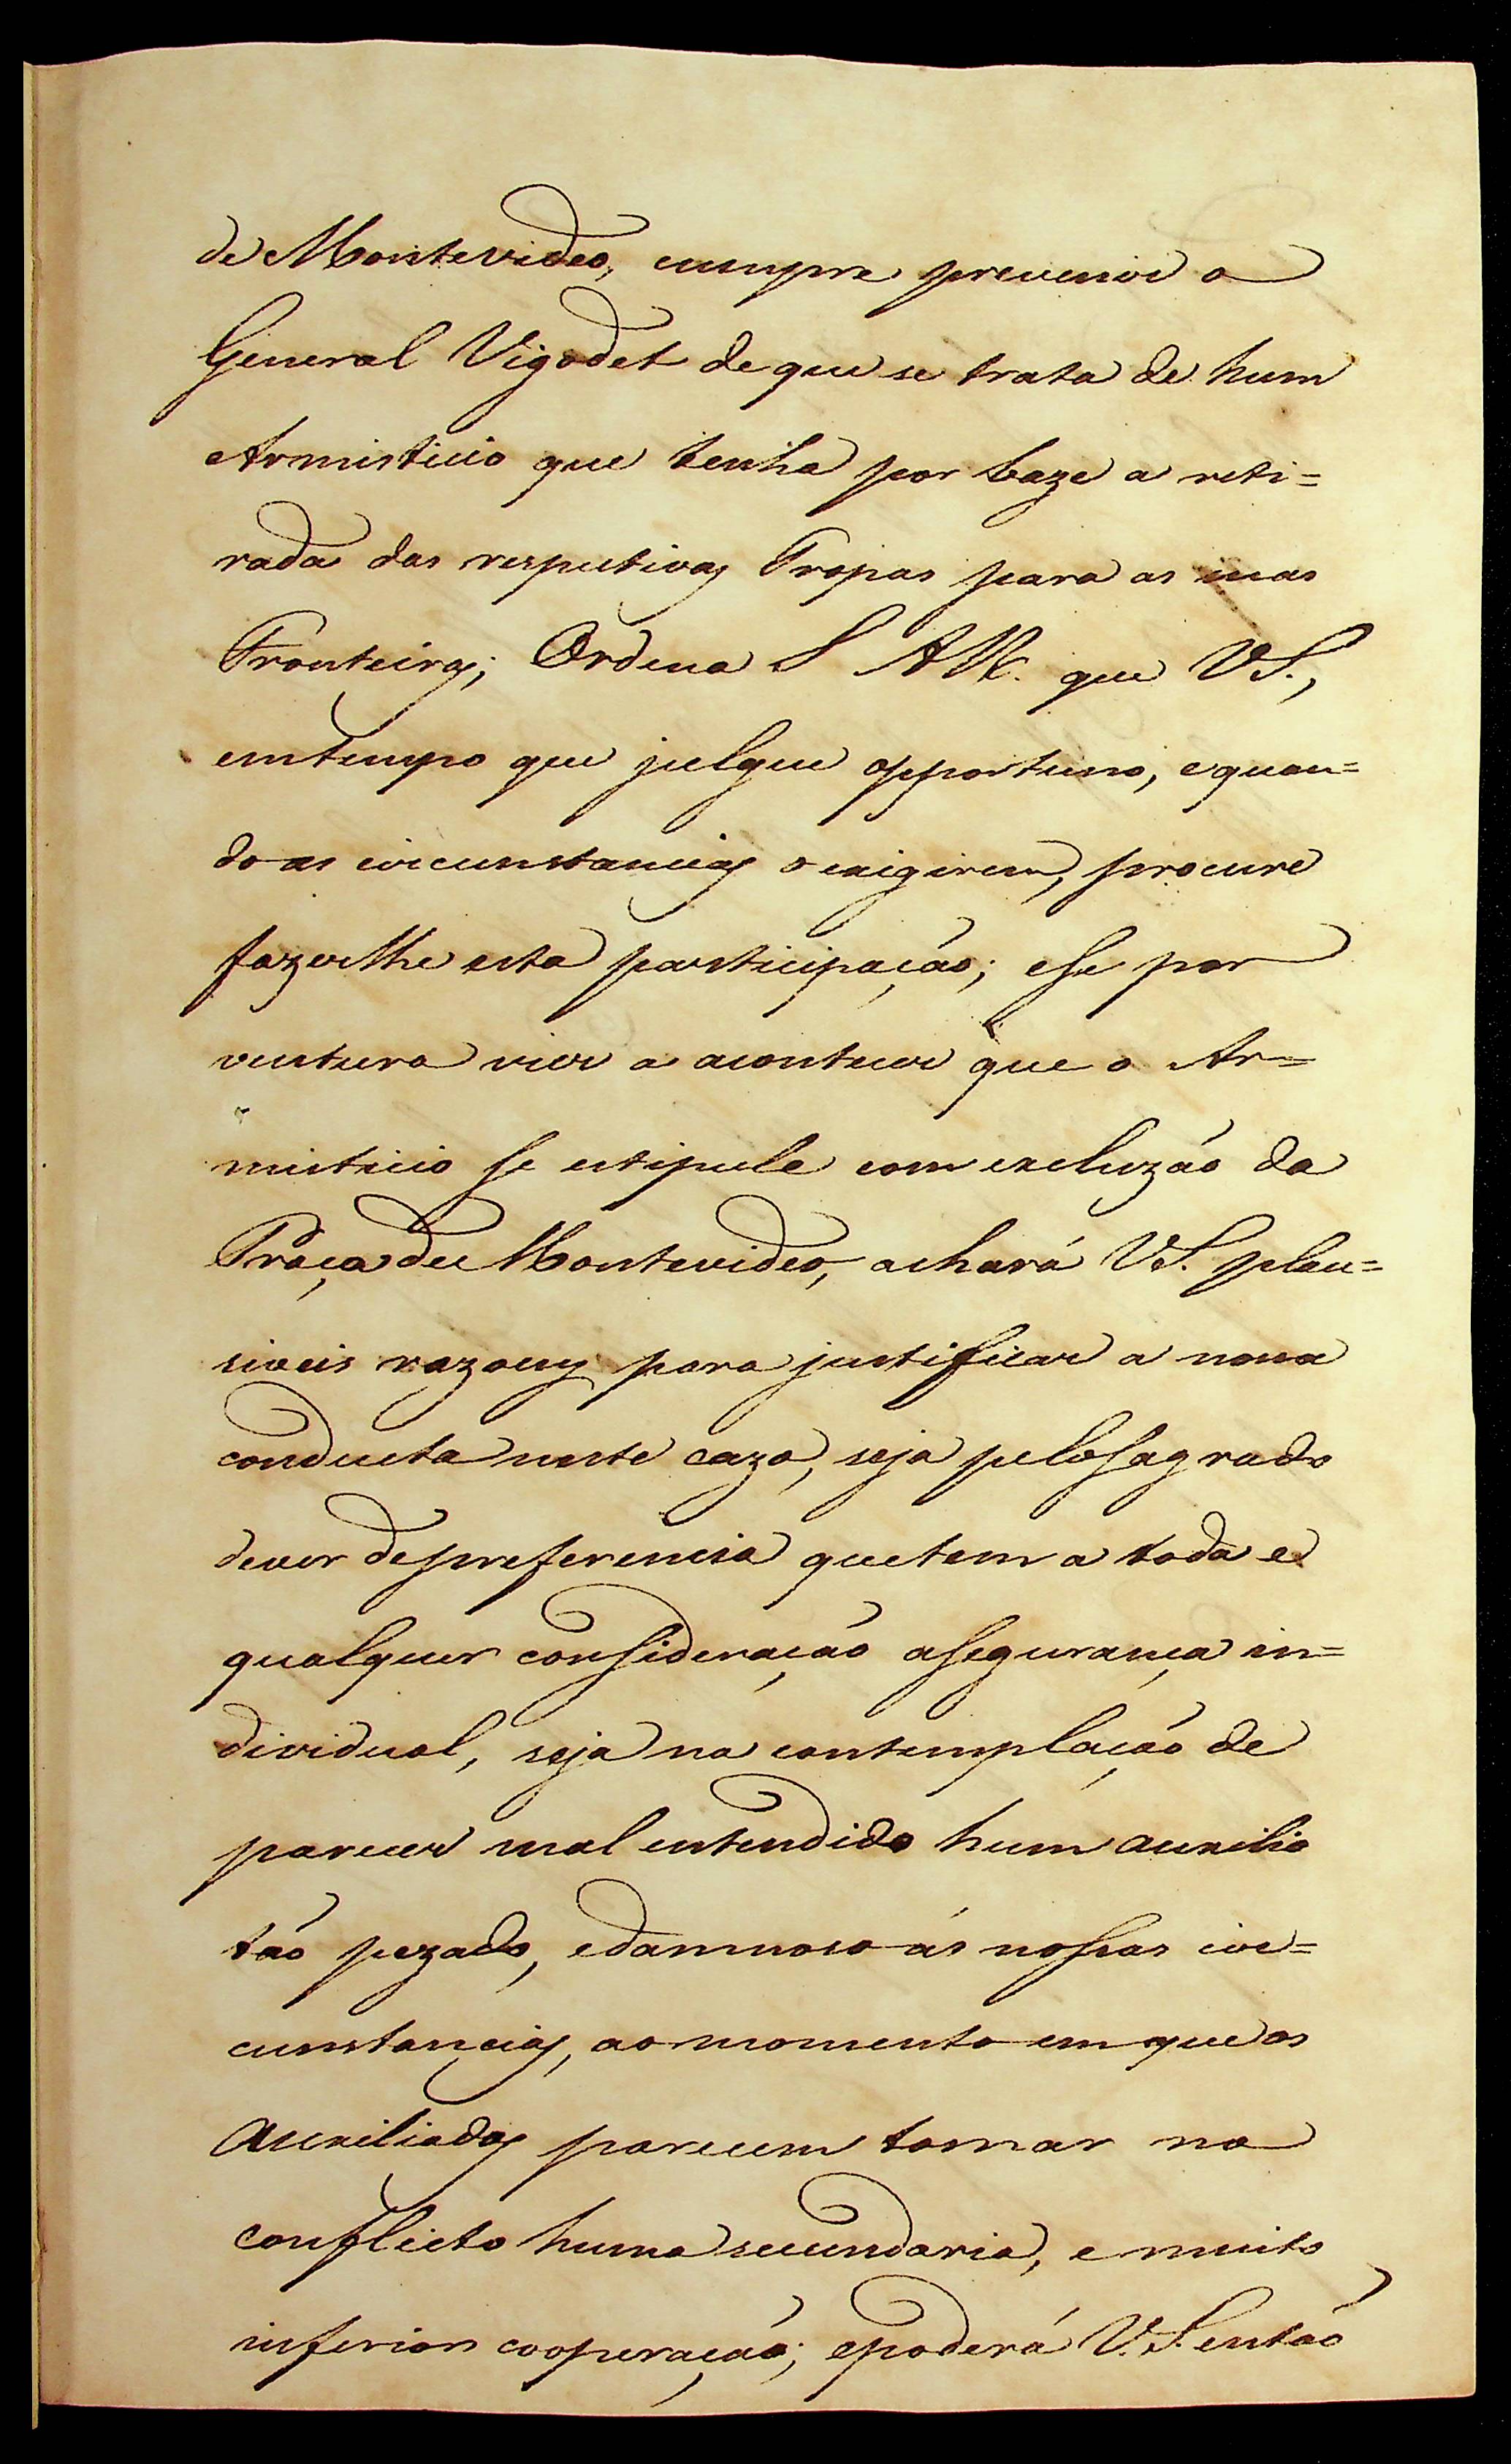 de Montevideo, cumpre prevenir o
General Vigodet de que se trata de hum
Armisticio que tenha por baze a reti=
rada das respectivas Tropas para as suas
Fronteiras; Ordena S A R. que VS.,
em tempo que julgue opportuno, e quan=
do as circunstancias o exigirem, procure
fazerlhe esta participação; e se por
ventura vier a acontecer que o Ar=
misticio se estipule com excluzão da
Praça de Montevideo, achará VS. plau=
siveis razoens para justificar a nossa
conducta neste cazo, seja pelo sagrado
dever de preferencia que tem a toda e
qualquer consideração a segurança in=
dividual, seja na contemplação de
parecer mal entendido hum auxilio
tão pezado, e damnoso ás nossas cir=
cunstancias, ao momento em que os
Auxiliados parecem tomar no
conflicto huma secundaria, e muito
inferior cooperação; e poderá V.S. então